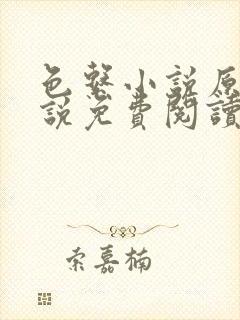 色慾小說原
說免費閱讀
索嘉楠